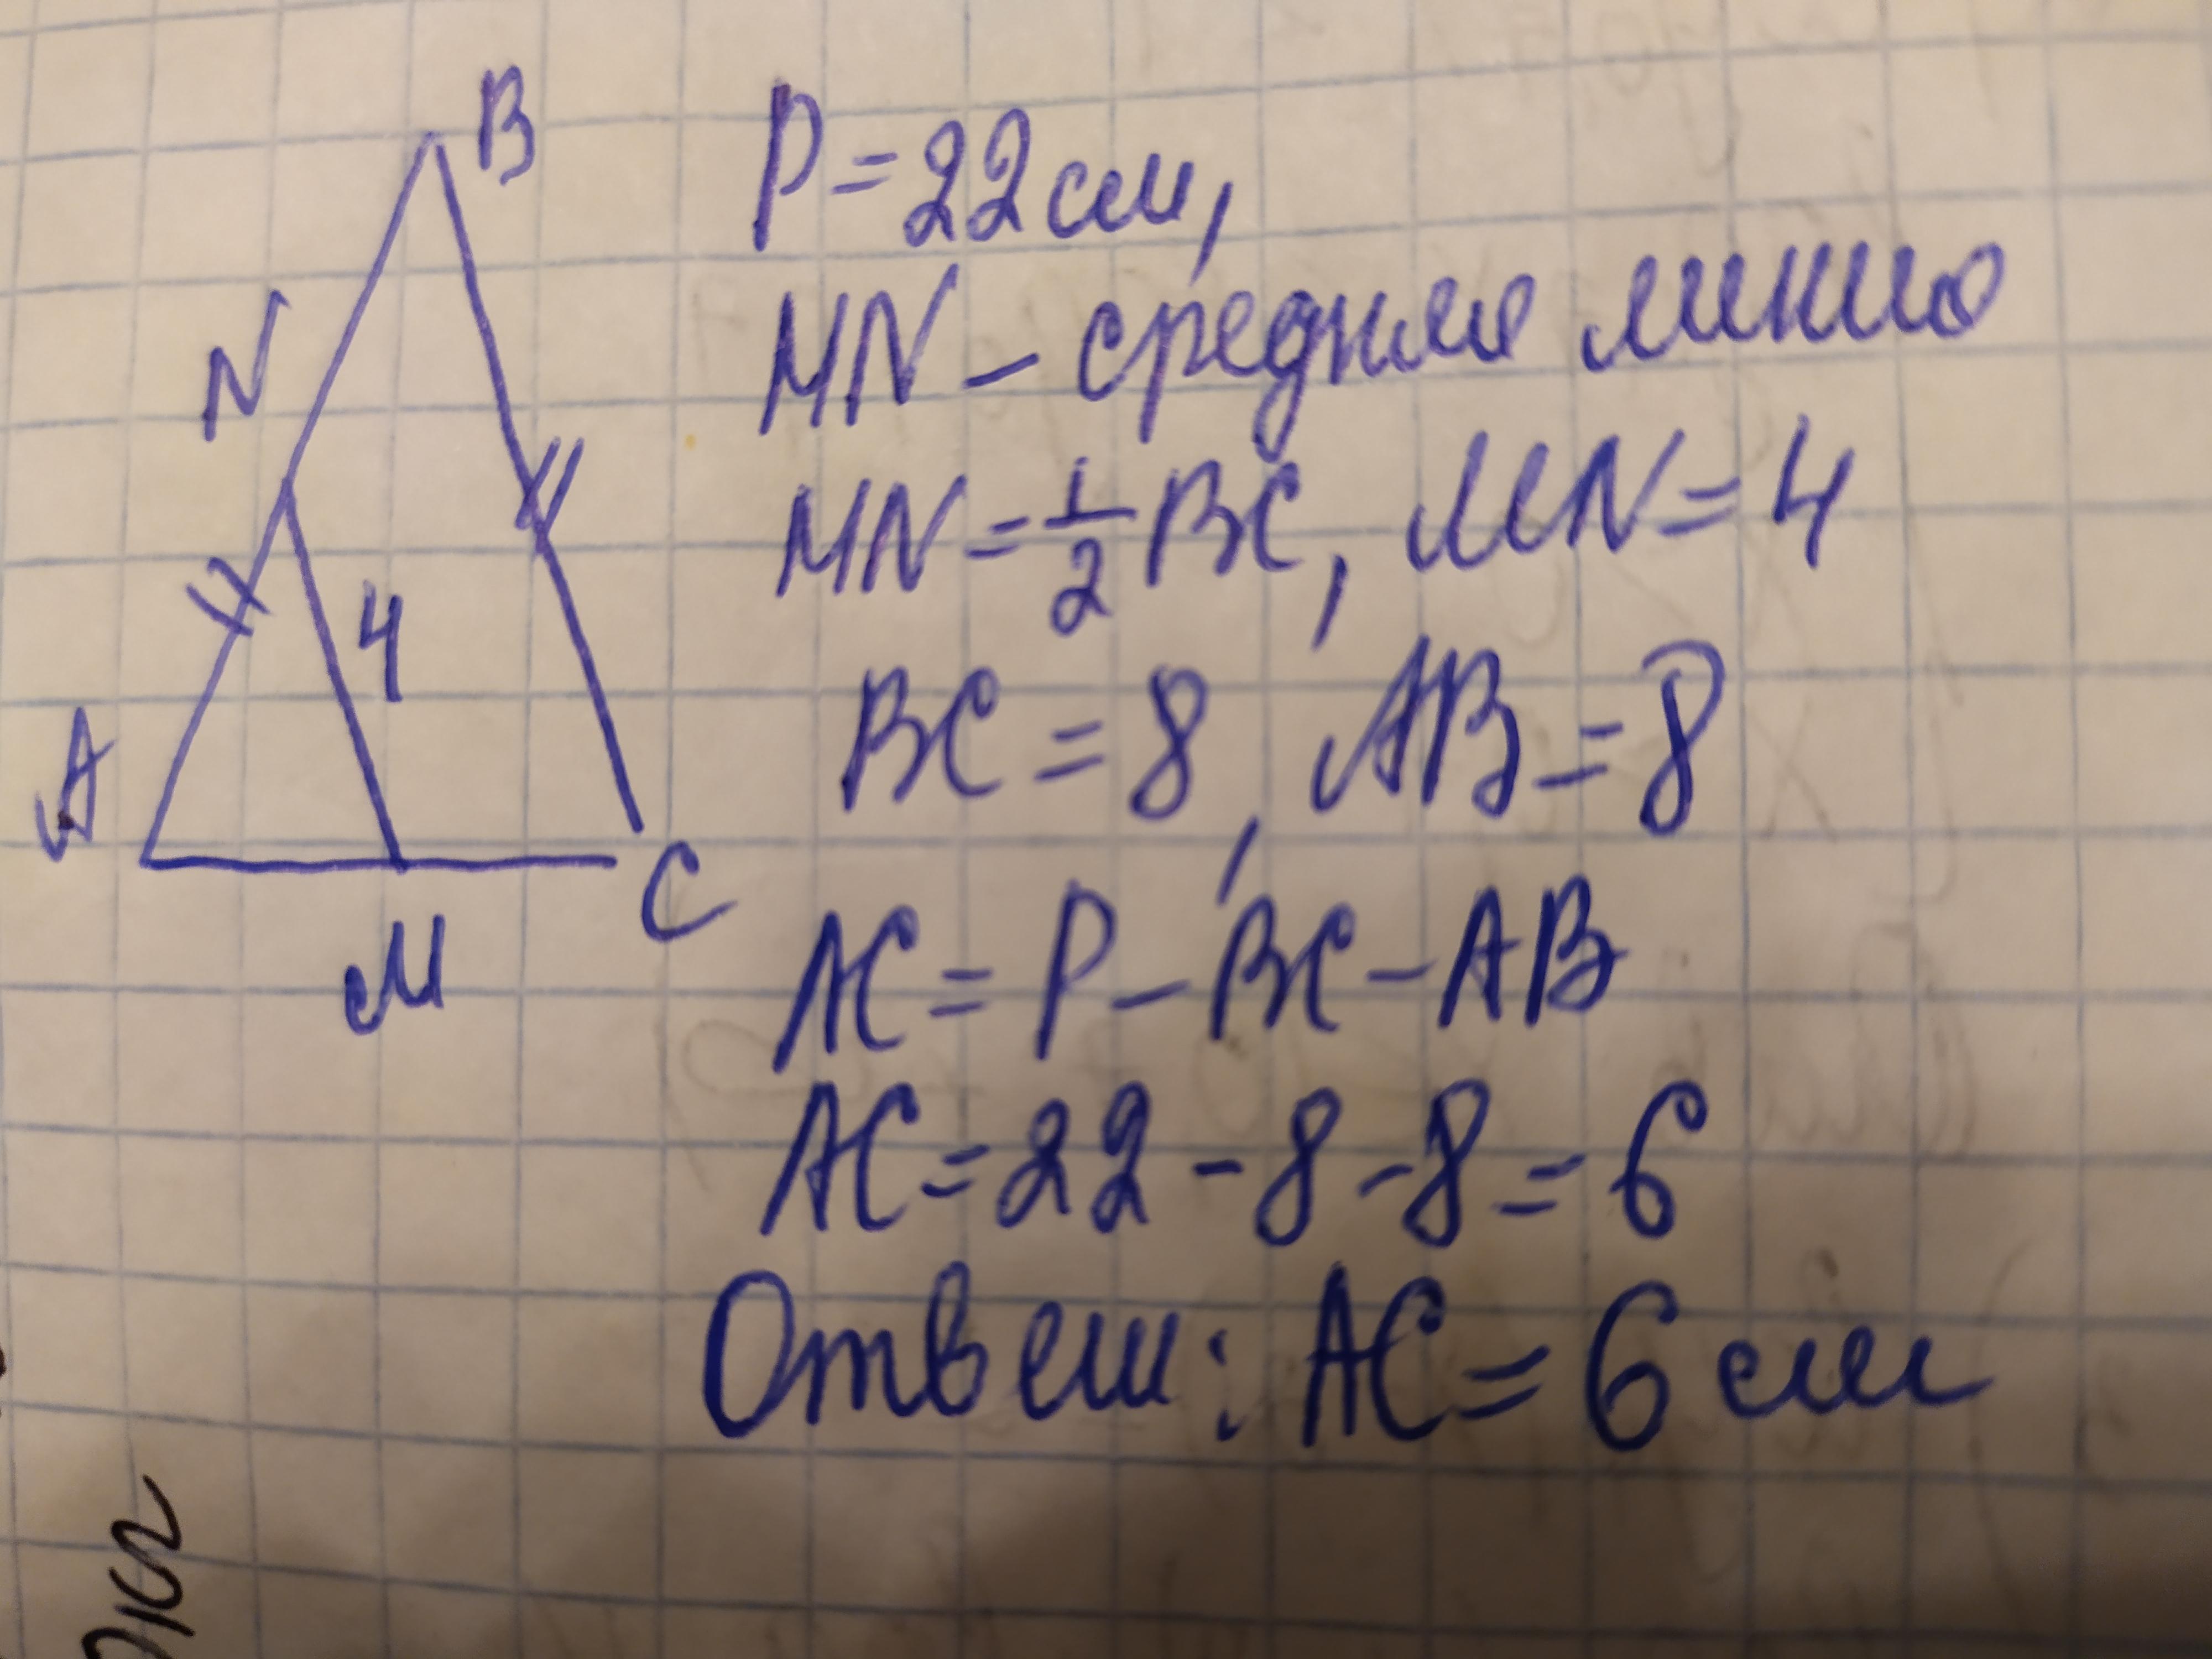 B
N
4
A
C
M
P = 22 см,
MN - средняя линию
MN = 1/2 BC, MN = 4
BC = 8, AB = 8
AC = P - BC - AB
AC = 22 - 8 - 8 = 6
Ответ: AC = 6 см